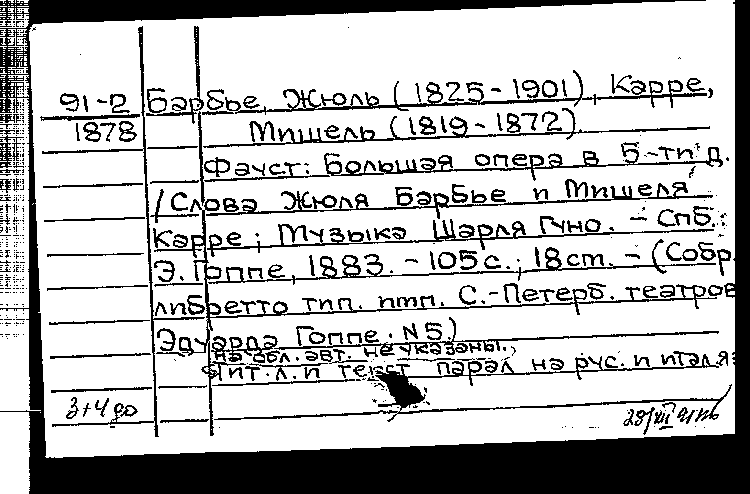 91-2 Барбье, Жюль (1825-1901), Карре,
1878 Мишель (1819-1872)
Фауст: Большая опера в 5-ти д.
/Слова Жюля Барбье и Мишеля
Карре; Музыка Шарля Гуно. - Спб.:
Э. Гоппе, 1883. - 105 с.; 18 см. - (Собр.
либретто тип. имп. С.-Петерб. театров
Эдуарда Гоппе. N5)
На обл. авт. не указаны.
Тит. л. и текст парал на рус. и итал. яз
3+4 до